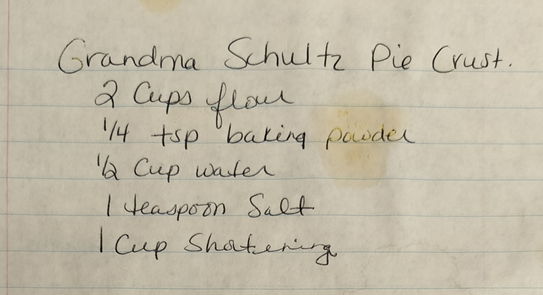 Grandma Schultz Pie Crust.
2 Cups flour
1/4 tsp baking powder
1/2 Cup water
1 teaspoon Salt
1 Cup Shortening